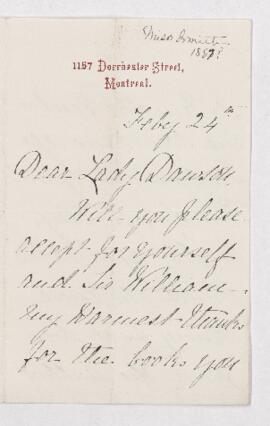 Miss
1887?
1157 Dorchester Street,
Montreal.
Feby 24th
Dear Lady Dawson,
Will you please
accept for yourself
and Sir William
my warmest thanks
for the books you